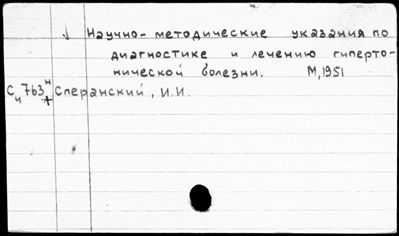 Научно-методические указания по
диагностике и лечению гиперто-
нической болезни. М, 1951
Сч 763 н Сперанский, И.И.